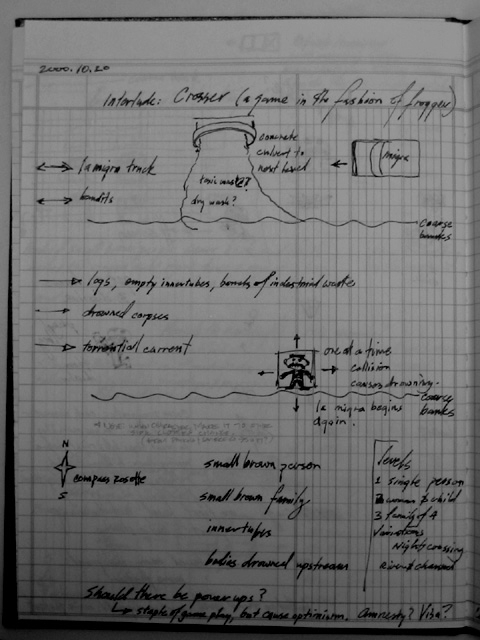 2000.10.20
Interlude: Crosser (a game in the fashion of frogger)
concrete
culvert to
next level
migra
la migra truck
toxic waste??
bandits
dry wash?
coarse
banks
logs, empty innertubes, barrels of industrial waste
drowned corpses
torrential current
one at a time
collision
causes drowning.
coarse
banks
la migra begins
again.
N
S
compass rosette
small brown person
small brown family
innertubes
bodies drowned upstream
levels
1 single person
2 woman & child
3 family of 4
variations
Night crossing
river & channel
Should there be power ups?
staple of game play, but cause optimism. Amnesty? Visa?